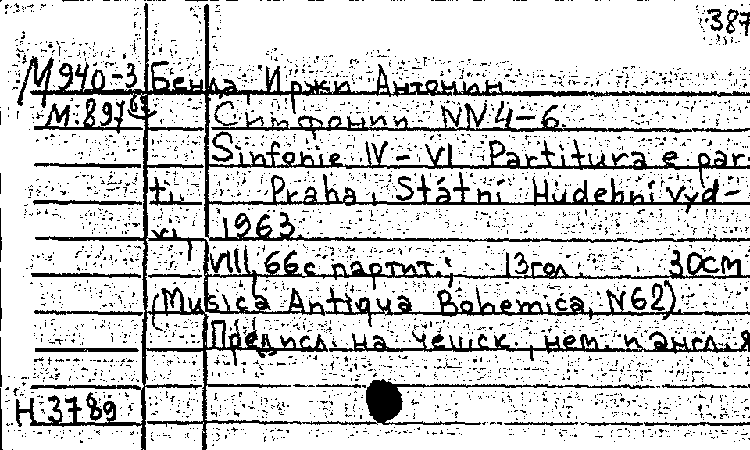 387
М940-3 Бенда, Иржи Антонин
М.897 63 Симфонии NN 4-6.
Sinfonie IV-VI. Partitura e par
ti. Praha, Státní Hudební vyd-
vi, 1963.
VIII, 66с партит.; 13гол. 30см
(Musica Antiqua Bohemica, N62).
Предисл. на чешск., нем. и англ. я
Н.3789